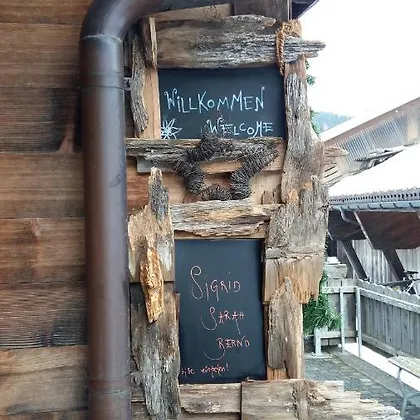 WILLKOMMEN
WELCOME
SIGRID
SARAH
BERND